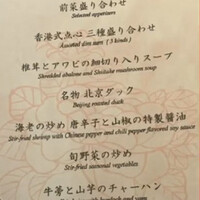 前菜盛り合わせ
Selected appetizers
香港式点心 三種盛り合わせ
Assorted dim sum ( 3 kinds )
椎茸とアワビの細切り入りスープ
Shredded abalone and Shiitake mushroom soup
名物 北京ダック
Beijing roasted duck
海老の炒め 唐辛子と山椒の特製醤油
Stir-fried shrimp with Chinese pepper and chili pepper flavored soy sauce
旬野菜の炒め
Stir-fried seasonal vegetables
牛蒡と山芋のチャーハン